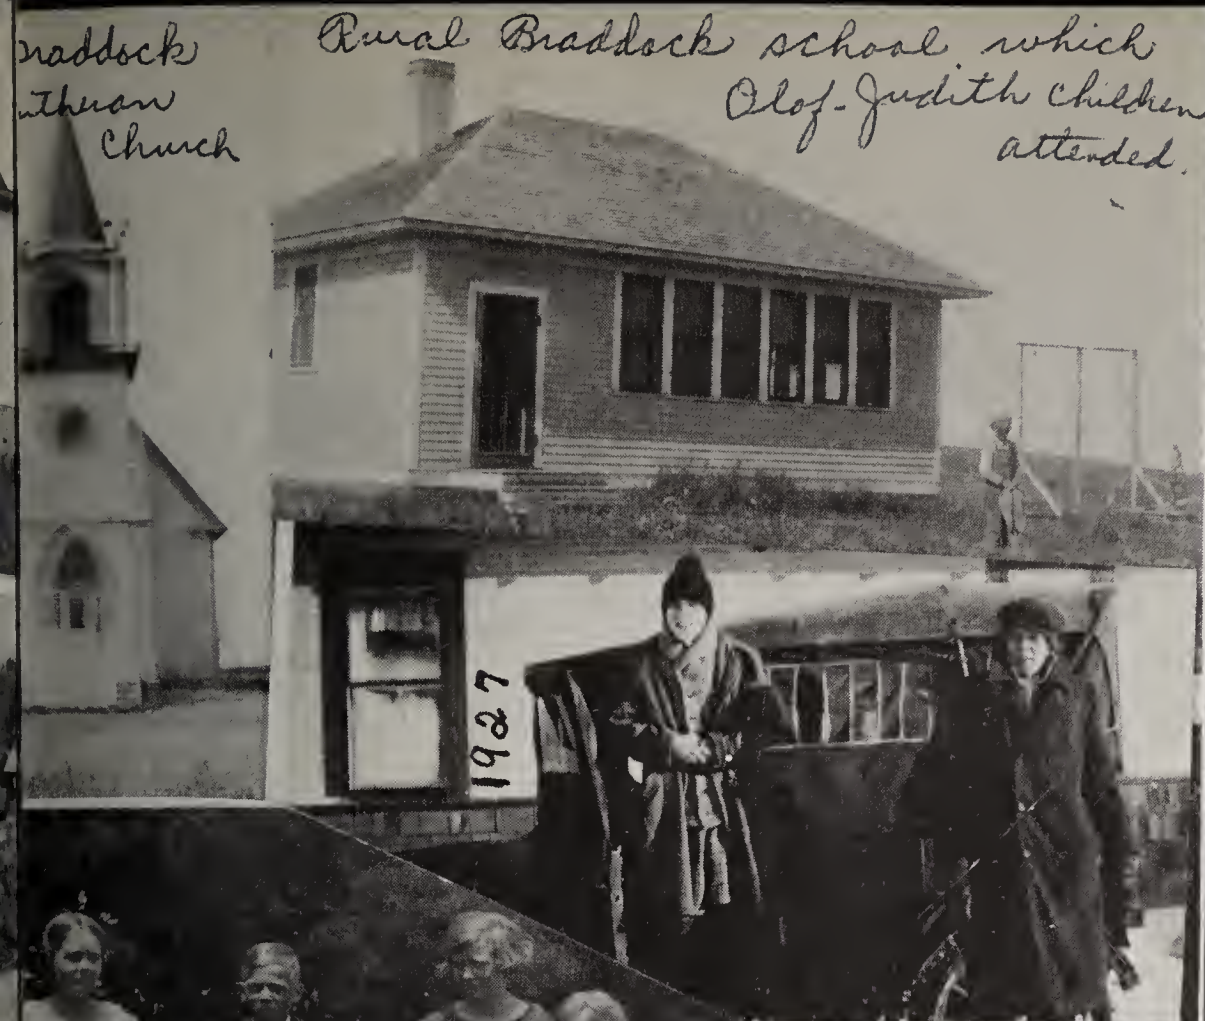 raddock
utheran
Church
Rural Braddock school which
Olof-Judith children
attended.
1927